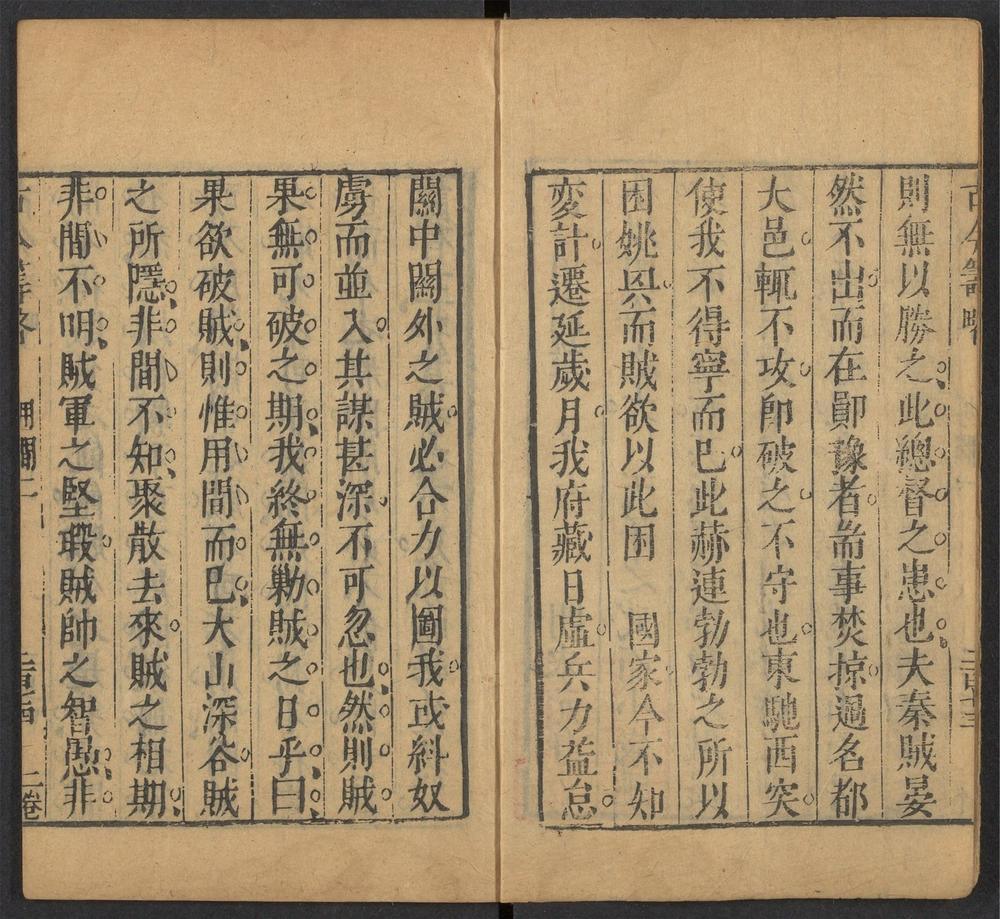 古今籌略
二百十三
則無以勝之此總督之患也夫秦賊晏
然不出而在鄖豫者耑事焚掠過名都
大邑輒不攻卽破之不守也東馳西突
使我不得寧而已此赫連勃勃之所以
困姚興而賊欲以此困 國家今不知
変計遷延歲月我府藏日虛兵力益怠
關中關外之賊必合力以圖我或糾奴
虜而並入其謀甚深不可忽也然則賊
果無可破之期我終無勦賊之日乎曰
果欲破賊則惟用間而已大山深谷賊
之所隱非間不知聚散去來賊之相期
非間不明賊軍之堅瑕賊帥之智愚非
古今籌略
用間二
二卷